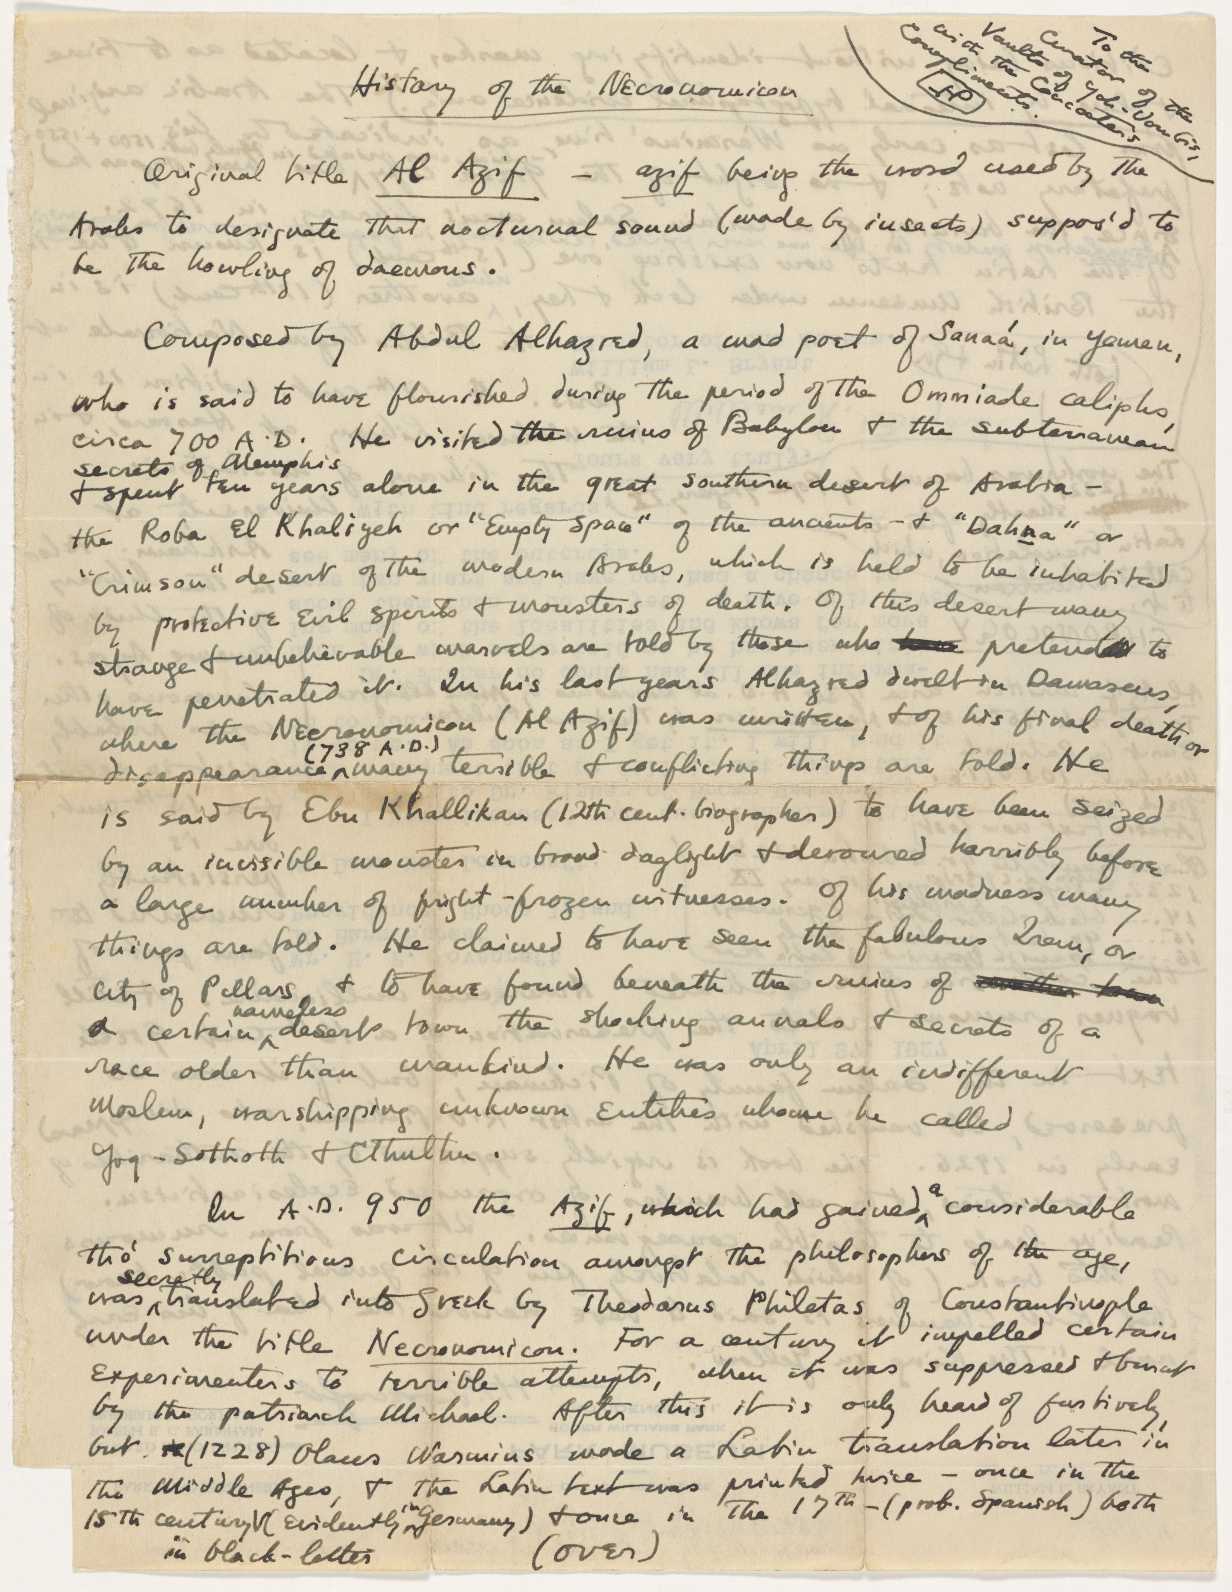 To the
Curator of the
Vaults of Yoh-Vombis,
with the Concoctor's
Compliments.
HP
History of the Necronomicon
Original title Al Azif — azif being the word used by the
Arabs to designate that nocturnal sound (made by insects) suppos'd to
be the howling of daemons.
Composed by Abdul Alhazred, a mad poet of Sanaá, in Yemen,
who is said to have flourished during the period of the Ommiade caliphs,
circa 700 A.D. He visited the ruins of Babylon & the subterranean
secrets of Memphis
& spent ten years alone in the great southern desert of Arabia —
the Roba El Khaliyeh or "Empty Space" of the ancients — & "Dahna" or
"Crimson" desert of the modern Arabs, which is held to be inhabited
by protective evil spirits & monsters of death. Of this desert many
strange & unbelievable marvels are told by those who have pretend to
have penetrated it. In his last years Alhazred dwelt in Damascus,
where the Necronomicon (Al Azif) was written, & of his final death or
disappearance (738 A.D.) many terrible & conflicting things are told. He
is said by Ebn Khallikan (12th cent. biographer) to have been seized
by an invisible monster in broad daylight & devoured horribly before
a large number of fright-frozen witnesses. Of his madness many
things are told. He claimed to have seen the fabulous Irem, or
City of Pillars, & to have found beneath the ruins of another town
a certain nameless desert town the shocking annals & secrets of a
race older than mankind. He was only an indifferent
Moslem, worshipping unknown Entities whom he called
Yog-Sothoth & Cthulhu.
In A.D. 950 the Azif, which had gained a considerable
tho' surreptitious circulation amongst the philosophers of the age,
was secretly translated into Greek by Theodorus Philetas of Constantinople
under the title Necronomicon. For a century it impelled certain
experimenters to terrible attempts, when it was suppressed & burnt
by the patriarch Michael. After this it is only heard of furtively,
but (1228) Olaus Wormius made a Latin translation later in
the Middle Ages, & the Latin text was printed twice — once in the
15th century (evidently in Germany) & once in the 17th — (prob. Spanish) both
in black-letter (over)